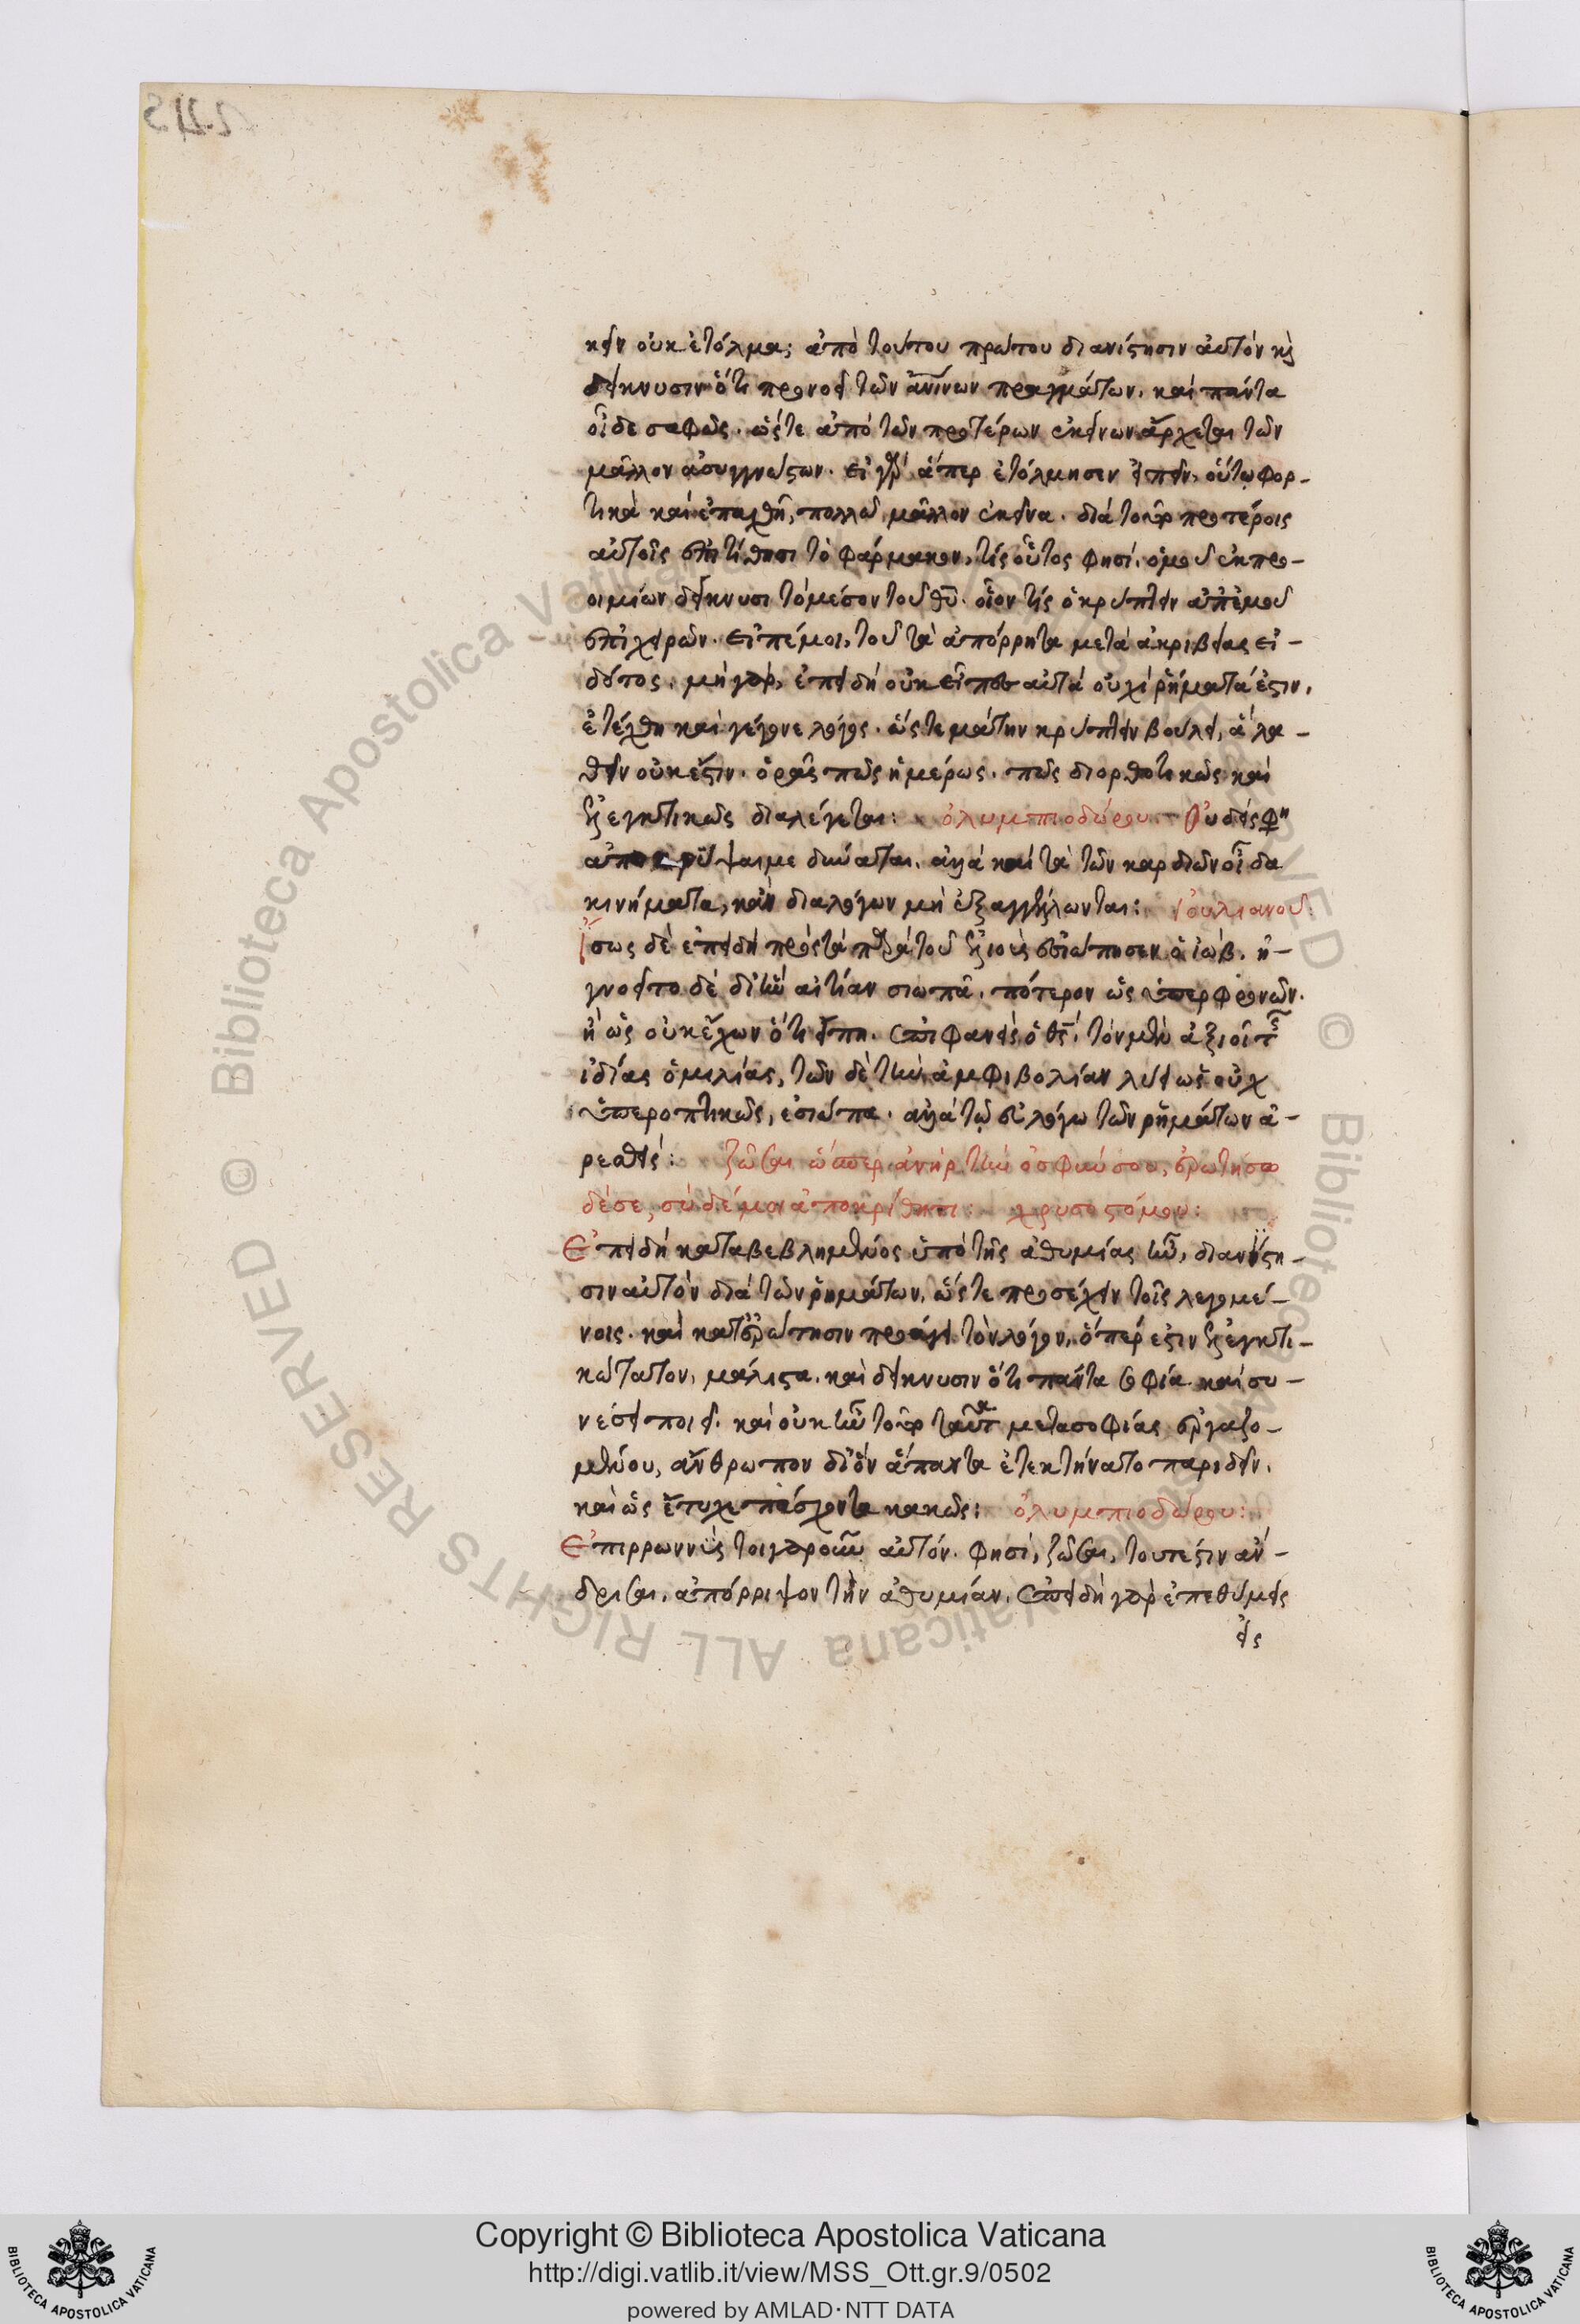 κεῖν οὐκ ἐτόλμα; ἀπὸ τούτου πρώτου διανίστησιν αὐτὸν καὶ
δείκνυσιν ὅτι προνοεῖ τῶν ἀν̅ίνων πραγμάτων. καὶ πάντα
οἶδε σαφῶς. ὥστε ἀπὸ τῶν προτέρων ἐκείνων ἄρχεται τῶν
μᾶλλον ἀσυγγνώστων. εἰ γὰρ ἅπερ ἐτόλμησεν εἰπεῖν, οὕτω φορ-
τικὰ καὶ ἐπαχθῆ, πολλῶ μᾶλλον ἐκεῖνα. διὰ τοῦτο προτέροις
αὐτοῖς ἐπιτίθησι τὸ φάρμακον, τίς οὗτος φησί. ὁμοῦ ἐκ προ-
οιμίων δείκνυσι τὸ μέσον τοῦ θῡ. οἷον τίς ὁ κρύπτειν ἀπ' ἐμοῦ
ἐπιχειρῶν. εἰπέ μοι, τοῦ τὰ ἀπόρρητα μετὰ ἀκριβείας εἰ-
δότος. μὴ γὰρ, ἐπειδὴ οὐκ εἶπεν αὐτὰ οὐχὶ ῥήματά ἐστιν,
ἐτέχθη καὶ γέγονε λόγος. ὥστε μάτην κρύπτειν βούλει, ἃ λα-
θεῖν οὐκ ἔστιν. ὁρᾶς πῶς ἡμέρως. πῶς διορθωτικῶς καὶ
ἐλεγκτικῶς διαλέγεται: ὀλυμπιοδώρου Οὐδείς φη
ἀποκρύψαι με δύναται. ἀλλὰ καὶ τὰ τῶν καρδιῶν οἶδα
κινήματα, κἂν διαλόγων μὴ ἐξαγγέλλωνται: ἰουλιανοῦ:
Ἴσως δὲ ἐπειδὴ πρὸς τὰ τοῦ ἐλιοὺς ἐσιώπησεν ὁ ἰώβ. ἠ-
γνοεῖτο δὲ δι' ἣν αἰτίαν σιωπᾶ. πότερον ὡς ὑπερφρονῶν.
ἢ ὡς οὐκ ἔχων ὅτι εἴπη. ἐπιφανεὶς ὁ θς̅, τὸν μὲν ἀξιοῖ τῆς
ἰδίας ὁμιλίας, τῶν δὲ τὴν ἀμφιβολίαν λύει ὡς οὐχ
ὑπεροπτικῶς, ἐσιώπα. ἀλλὰ τῶ συλλόγω τῶν ῥημάτων ἀ-
ρεσθείς: ζῶσαι ὥσπερ ἀνὴρ τὴν ὀσφύν σου, ἐρωτήσω
δέ σε, σὺ δέ μοι ἀποκρίθητι: χρυσοστόμου:
Ἐπειδὴ καταβεβλημένος ὑπὸ τῆς ἀθυμίας ἦν, διανίστη-
σιν αὐτὸν διὰ τῶν ῥημάτων, ὥστε προσέχειν τοῖς λεγομέ-
νοις. καὶ κατ' ἐρώτησιν προάγει τὸν λόγον, ὅπερ ἐστὶν ἐλεγκτι-
κώτατον, μάλιστα. καὶ δείκνυσιν ὅτι πάντα σοφία καὶ συ-
νέσει ποιεῖ. καὶ οὐκ ἦν τοῦ ταῦτα μετὰ σοφίας ἐργαζο-
μένου, ἄνθρωπον δι' ὃν ἅπαντα ἐτεκτήνατο παριδεῖν.
καὶ ὡς ἔτυχε πάσχοντα κακῶς: ὀλυμπιοδώρου:
Ἐπιρρωννὺς τοιγαροῦν αὐτόν. φησί, ζῶσαι, τουτέστιν ἀν-
δρισαι. ἀπόρριψον τὴν ἀθυμίαν. ἐπειδὴ γὰρ ἐπεθύμεις
εἰς
Copyright © Biblioteca Apostolica Vaticana
http://digi.vatlib.it/view/MSS_Ott.gr.9/0502
powered by AMLAD·NTT DATA